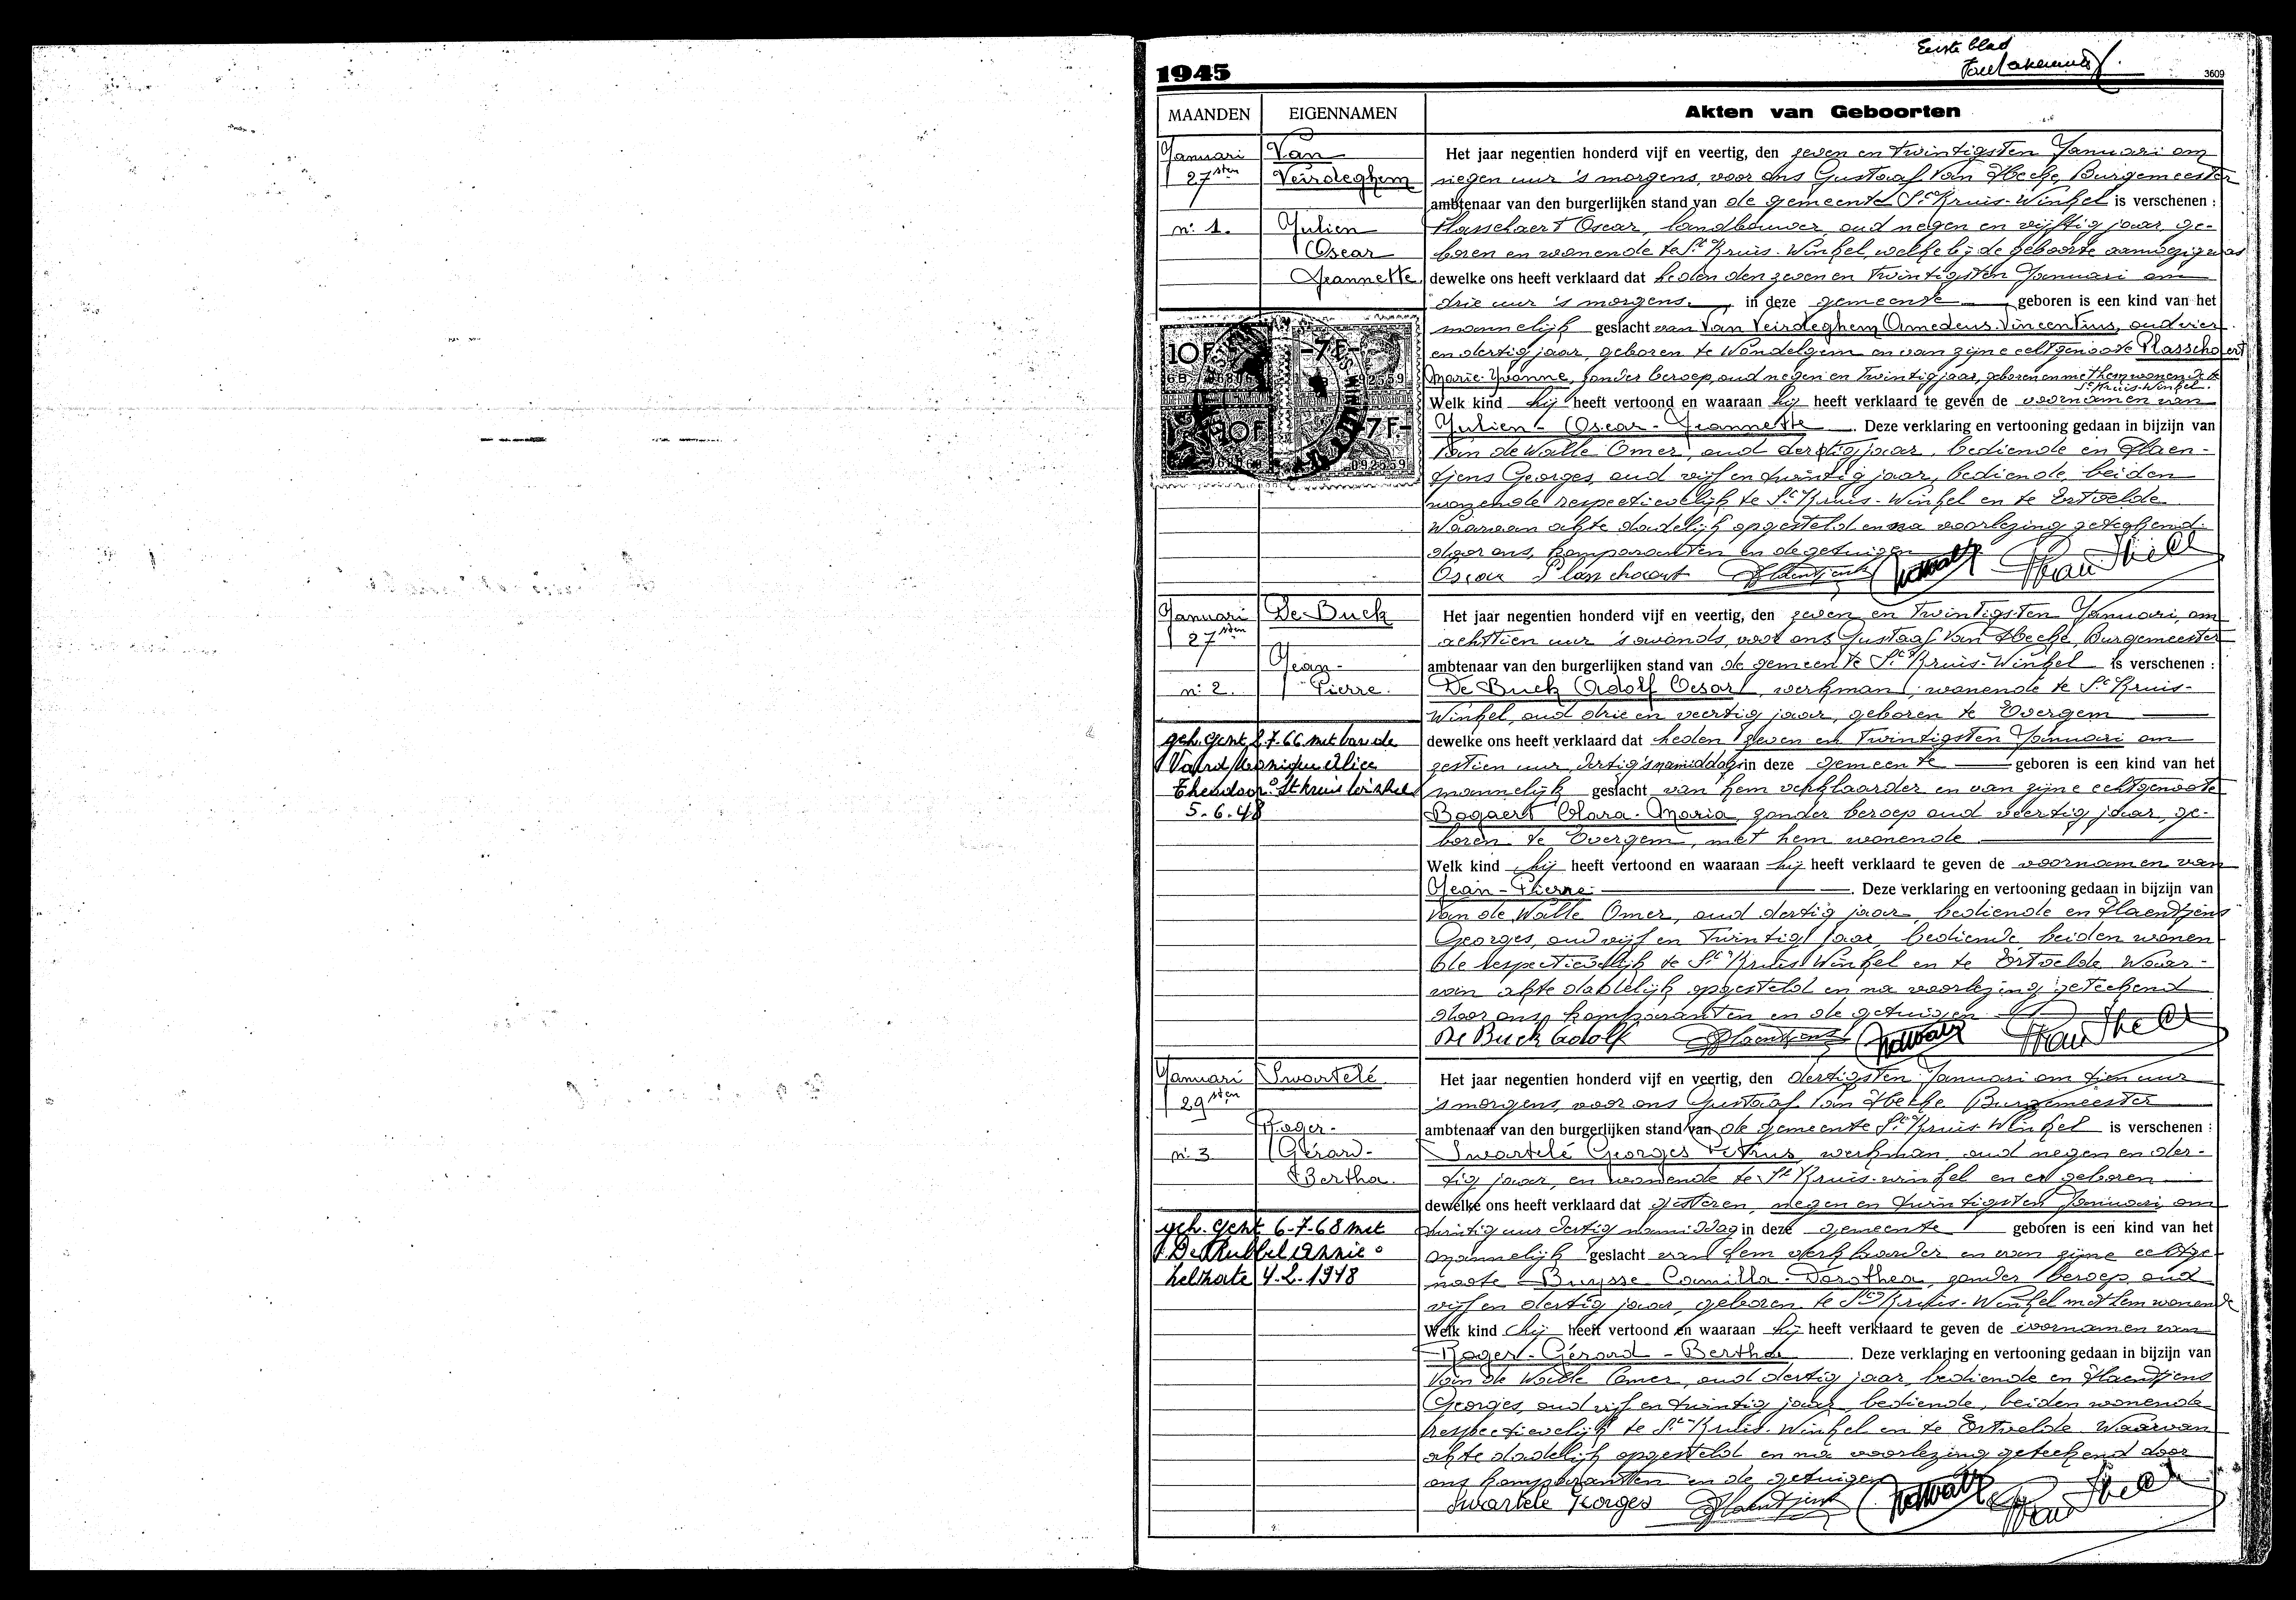 Eerste blad
1945
3609
MAANDEN EIGENNAMEN Akten van Geboorten
Januari
27sten
n: 1.
Van
Veirdeghem
Julien
Oscar
Jeannette
10F 7F
10F 7F
092559
Het jaar negentien honderd vijf en veertig, den zeven en twintigsten Januari om
negen uur 's morgens, voor ons Gustaaf Van Hecke, Burgemeester
ambtenaar van den burgerlijken stand van de gemeente St Kruis-Winkel is verschenen :
Plasschaert Oscar, landbouwer, oud negen en vijftig jaar, ge-
boren en wonende te St Kruis-Winkel, welke bij de geboorte aanwezig was
dewelke ons heeft verklaard dat heden den zeven en twintigsten Januari om
drie uur 's morgens in deze gemeente geboren is een kind van het
mannelijk geslacht van Van Veirdeghem Omedeus Vincentius, oud vier
en dertig jaar, geboren te Wondelgem en van zijne echtgenoote Plasschaert
Marie-Yvonne, zonder beroep, oud negen en twintig jaar, geboren en met hem wonende te
St Kruis-Winkel.
Welk kind hij heeft vertoond en waaraan hij heeft verklaard te geven de voornamen van
Julien-Oscar-Jeannette. Deze verklaring en vertooning gedaan in bijzijn van
Van de Walle Omer, oud dertig jaar, bediende en Haen-
tjens Georges, oud vijf en twintig jaar, bediende, beiden
wonende respectievelijk te St Kruis-Winkel en te Ertvelde
Waarvan akte dadelijk opgesteld en na voorlezing geteekend
door ons, komparanten en de getuigen
Oscar Plasschaert
Januari
27sten
n: 2.
De Buck
Jean-
Pierre.
geh. Gent 2-7-66 met van de
Theodoor ° St Kruis Winkel
5-6-48
Het jaar negentien honderd vijf en veertig, den zeven en twintigsten Januari, om
achttien uur 's avonds, voor ons Gustaaf Van Hecke, Burgemeester
ambtenaar van den burgerlijken stand van de gemeente St Kruis-Winkel is verschenen :
De Buck Adolf Cesar, werkman, wonende te St Kruis-
Winkel, oud drie en veertig jaar, geboren te Evergem
dewelke ons heeft verklaard dat heden zeven en twintigsten Januari om
zestien uur dertig 's namiddags in deze gemeente geboren is een kind van het
mannelijk geslacht van hem verklaarder en van zijne echtgenoote
Bogaert Clara-Maria, zonder beroep oud veertig jaar, ge-
boren te Evergem, met hem wonende
Welk kind hij heeft vertoond en waaraan hij heeft verklaard te geven de voornamen van
Jean-Pierre. Deze verklaring en vertooning gedaan in bijzijn van
Van de Walle Omer, oud dertig jaar, bediende en Haentjens
Georges, oud vijf en twintig jaar, bediende, beiden wonen-
de respectievelijk te St Kruis Winkel en te Ertvelde Waar-
van akte dadelijk opgesteld en na voorlezing geteekend
door ons, komparanten en de getuigen
De Buck Adolf
Januari
29sten
n: 3
Swartelé
Roger-
Gérard-
Bertha.
geh. Gent 6-7-68 met
De Rubbel Annie °
Zelzate 4-2-1948
Het jaar negentien honderd vijf en veertig, den dertigsten Januari om tien uur
's morgens, voor ons Gustaaf Van Hecke Burgemeester
ambtenaar van den burgerlijken stand van de gemeente St Kruis-Winkel is verschenen :
Swartelé Georges Petrus, werkman, oud negen en der-
tig jaar, en wonende te St Kruis-winkel en er geboren
dewelke ons heeft verklaard dat gisteren, negen en twintigsten Januari, om
twintig uur dertig namiddag in deze gemeente geboren is een kind van het
mannelijk geslacht van hem verklaarder en van zijne echtge-
noote Buysse Camilla-Dorothea, zonder beroep, oud
vijf en dertig jaar, geboren te St Kruis-Winkel met hem wonende
Welk kind hij heeft vertoond en waaraan hij heeft verklaard te geven de voornamen van
Roger-Gérard-Bertha. Deze verklaring en vertooning gedaan in bijzijn van
Van de Walle Omer, oud dertig jaar, bediende en Haentjens
Georges, oud vijf en twintig jaar, bediende, beiden wonende
respectievelijk te St Kruis-Winkel en te Ertvelde Waarvan
akte dadelijk opgesteld en na voorlezing geteekend door
ons komparanten en de getuigen
Swartele Georges